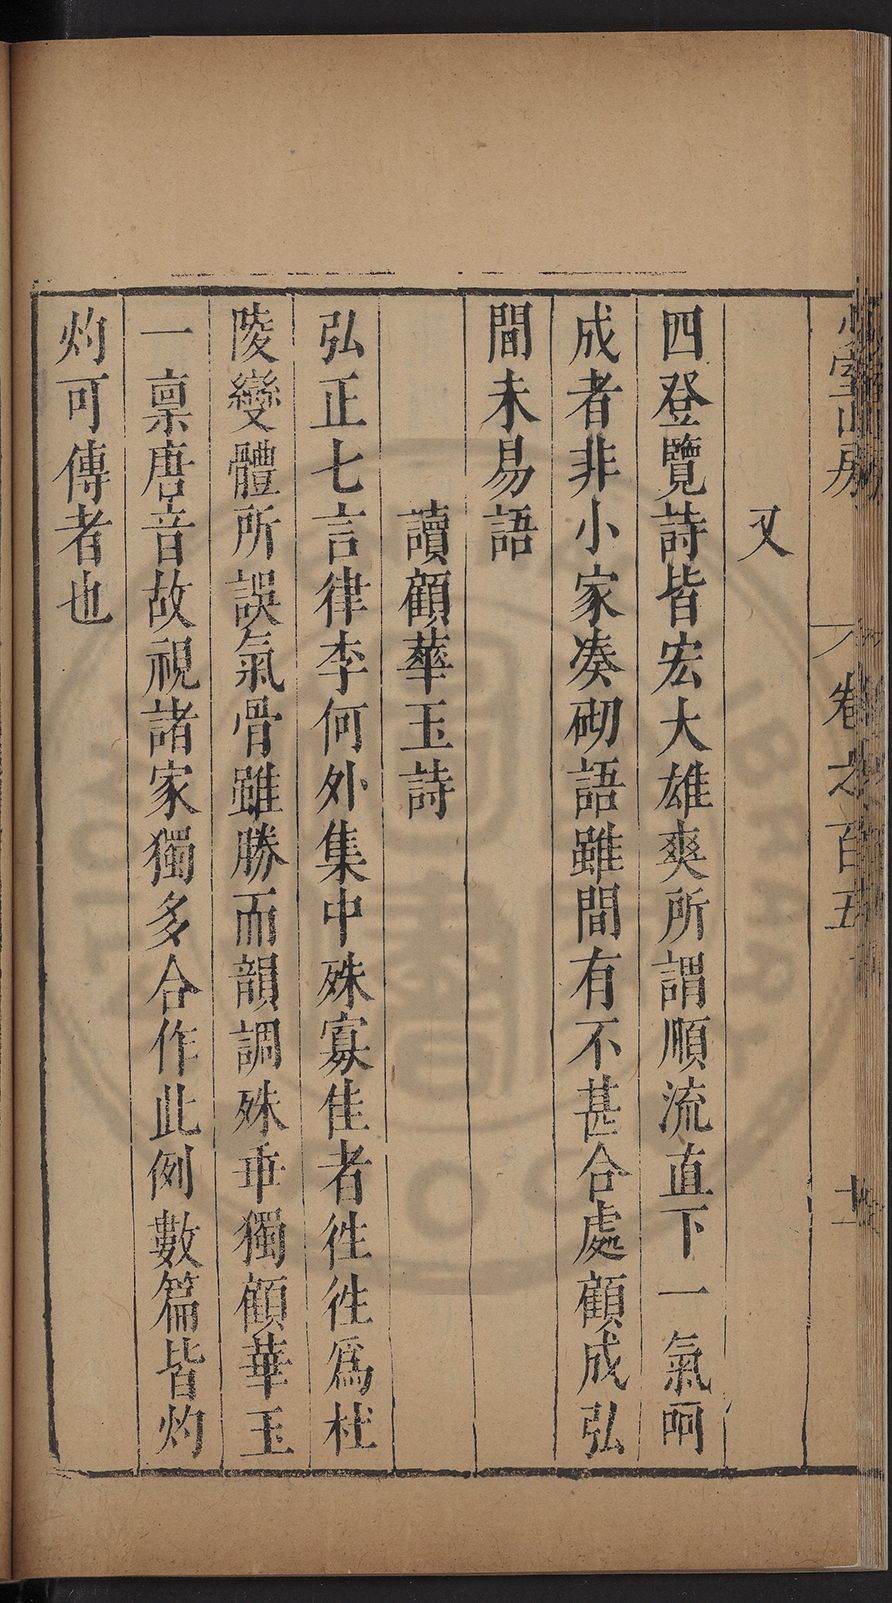 少室山房
卷之百五
十
又
四登覽詩皆宏大雄爽所謂順流直下一氣呵
成者非小家湊砌語雖間有不甚合處顧成弘
間未易語
讀顧華玉詩
弘正七言律李何外集中殊寡佳者徃徃爲杜
陵變體所誤氣骨雖勝而韻調殊乖獨顧華玉
一稟唐音故視諸家獨多合作此例數篇皆灼
灼可傳者也